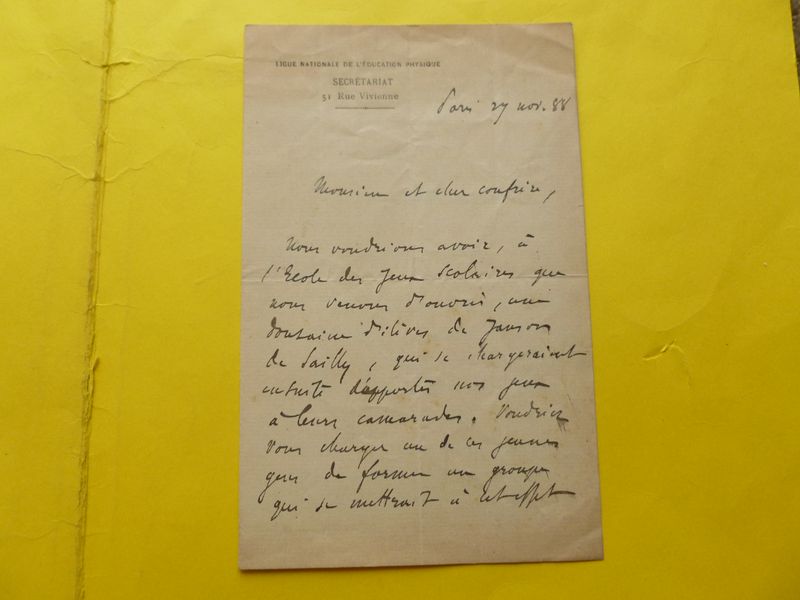 LIGUE NATIONALE DE L'ÉDUCATION PHYSIQUE
SECRÉTARIAT
51 Rue Vivienne
Paris 27 nov. 88
Monsieur et cher confrère,
Nous voudrions avoir, à
l'Ecole des Jeux Scolaires que
nous venons d'ouvrir, une
douzaine d'élèves de Janson
de Sailly, qui se chargeraient
ensuite d'apporter nos jeux
à leurs camarades. Voudriez
vous charger un de ces jeunes
gens de former un groupe
qui se mettrait à cet effet